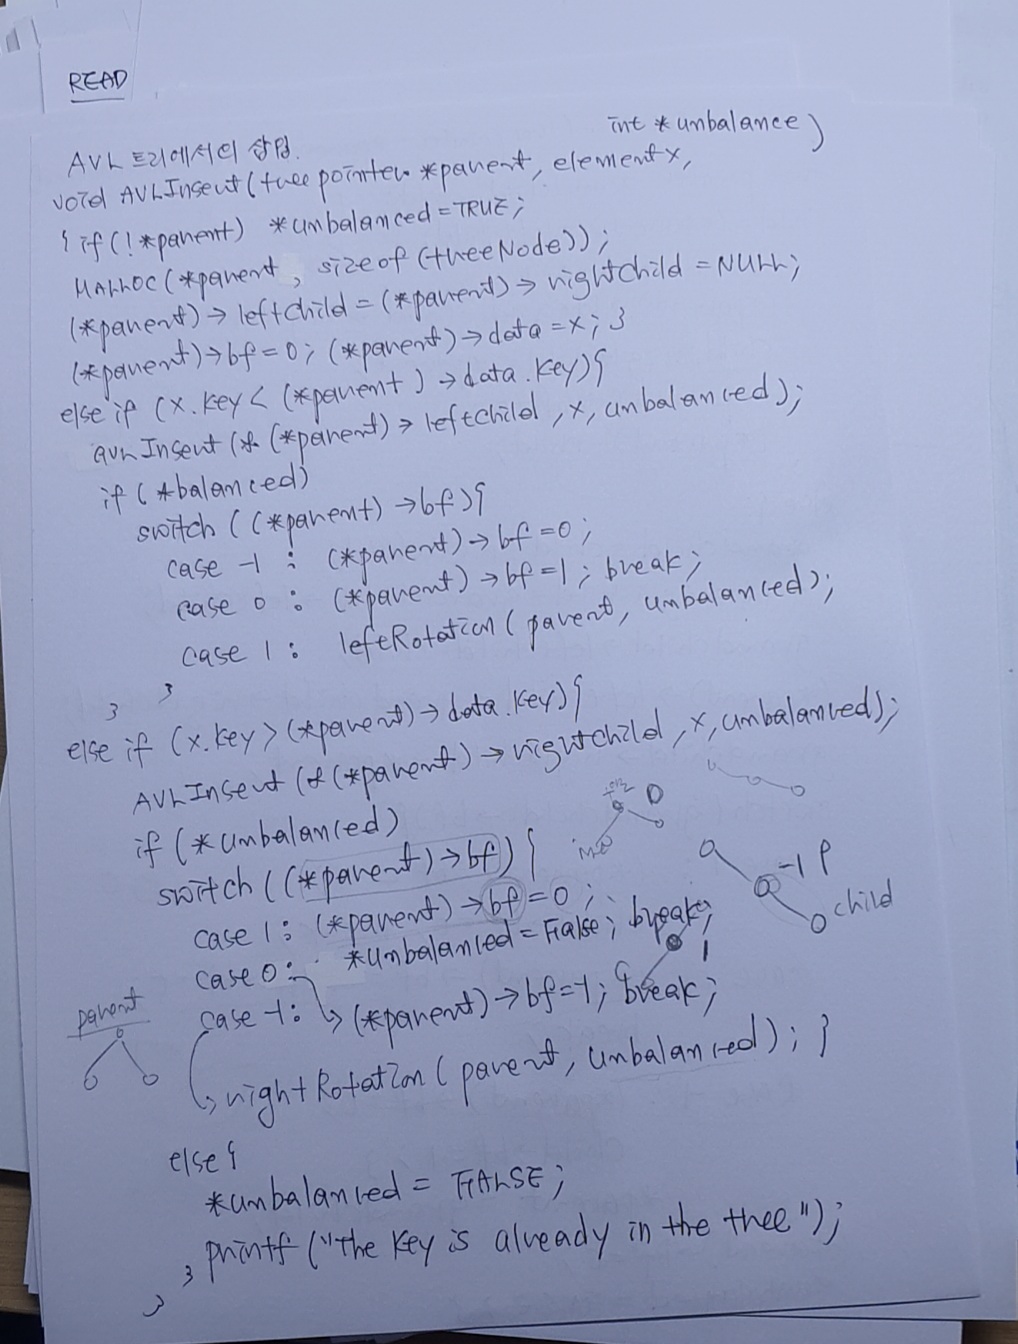 READ
AVL 트리에서의 삽입.
void AVLInsert(tree pointer *parent, element x, int *unbalance)
{ if(!*parent) *unbalanced=TRUE;
MALLOC(*parent, sizeof(treeNode));
(*parent)→leftchild=(*parent)→rightchild=NULL;
(*parent)→bf=0; (*parent)→data=x; }
else if (x.key<(*parent)→data.key){
avlInsert(&(*parent)→leftchild, x, unbalanced);
if(*balanced)
switch((*parent)→bf){
case -1 : (*parent)→bf=0;
case 0 : (*parent)→bf=1; break;
case 1 : leftRotation(parent, unbalanced);
}
}
else if (x.key>(*parent)→data.key){
AVLInsert(&(*parent)→rightchild, x, unbalanced);
if(*unbalanced)
switch((*parent)→bf){
case 1: (*parent)→bf=0;
*unbalanced=False; break;
case 0: (*parent)→bf=-1; break;
case -1:
rightRotation(parent, unbalanced); }
else{
*unbalanced = FALSE;
printf("the key is already in the tree");
}
}
parent
0
-1 P
child
1